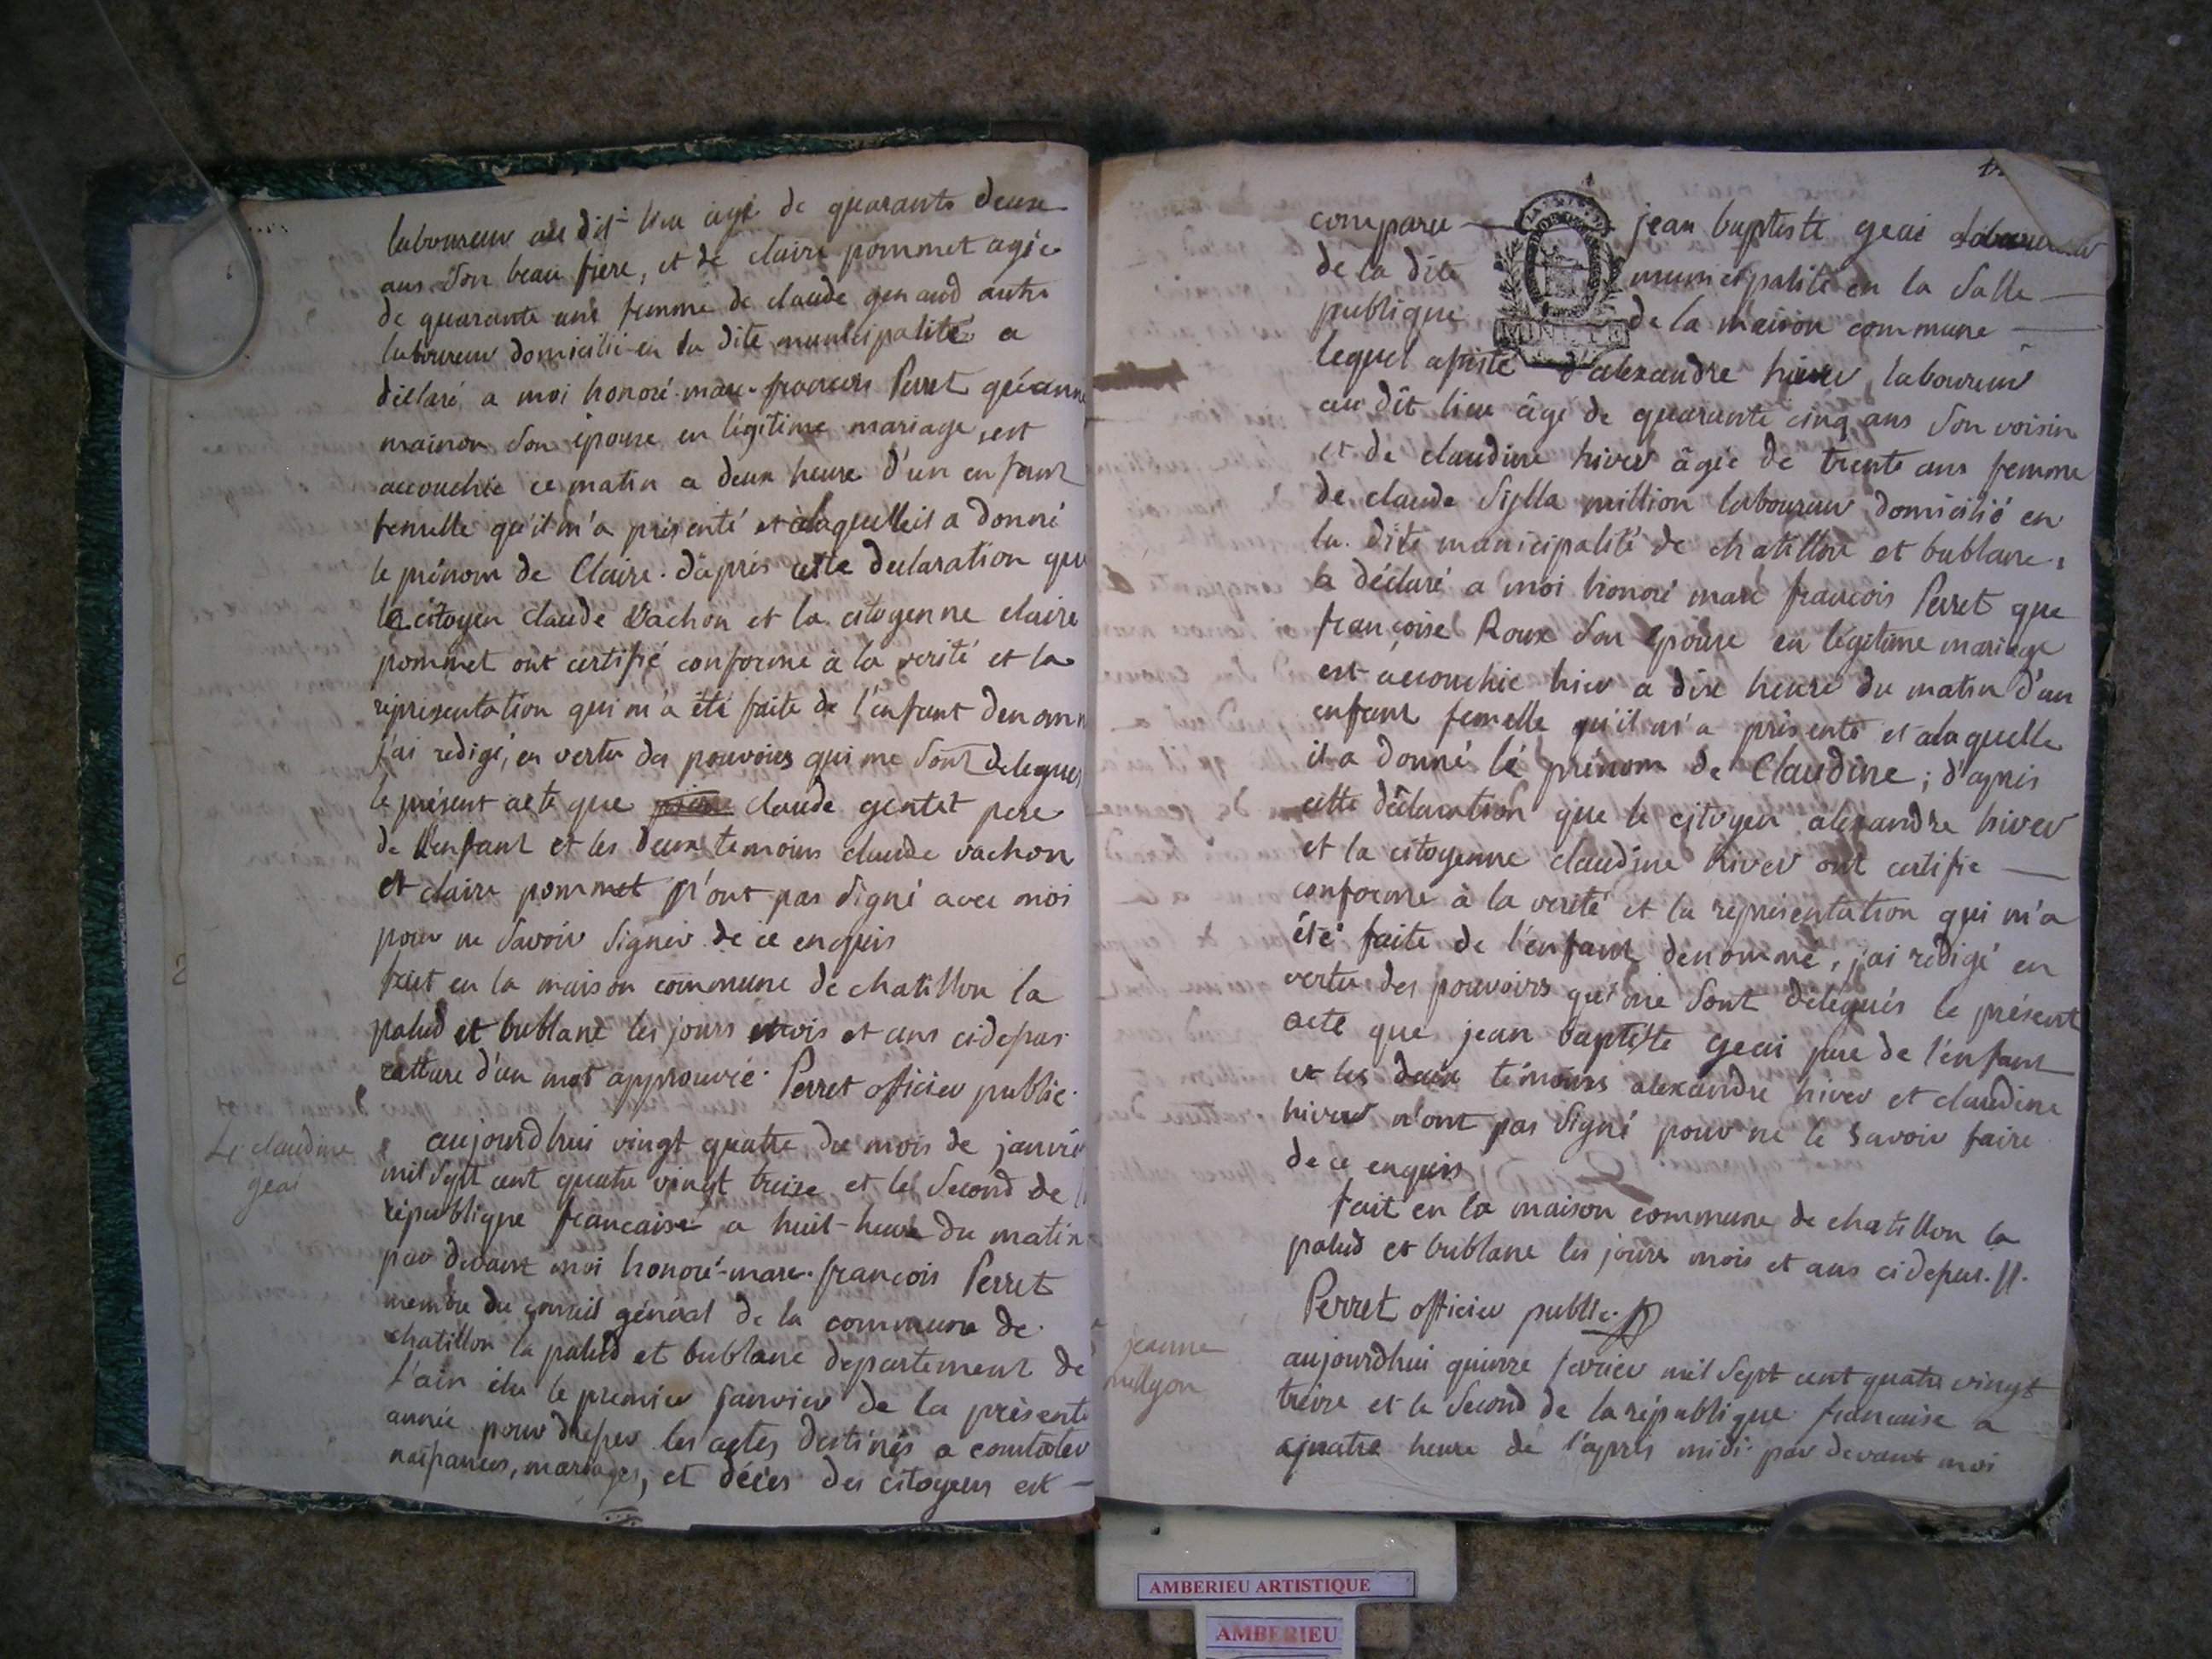 laboureur au dit lieu agé de quarante deux
ans son beau frere, et de claire pommet agée
de quarante ans femme de claude genaud autre
laboureur domicilié en la dite municipalité a
déclaré a moi honoré-marc-francois Perret qu'anne
mainon son épouse en légitime mariage, est
accouchée ce matin a deux heure d'un enfant
femelle qu'il m'a présenté et alaquelle il a donné
le prénom de Claire. d'après cette declaration que
le citoyen claude Vachon et la citoyenne claire
pommet ont certifié conforme à la verité et la
représentation qui m'a été faite de l'enfant denomm
j'ai redigé, en vertu des pouvoirs qui me sont delegués
le présent acte que claude gentet pere
de l'enfant et les deux temoins claude vachon
et claire pommet n'ont pas signé avec moi
pour ne savoir signer de ce enquis
fait en la maison commune de chatillon la
palud et bublane les jours mois et ans cidessus
rature d'un mot approuvée. Perret officier public.
4 claudine
geai
aujourdhui vingt quatre du mois de janvie
mil sept cent quatre vingt treize et le second de l
république francaise a huit heure du matin
par devant moi honoré-marc-francois Perret
membre du conseil général de la commune de
chatillon la palud et bublane departement de
l'ain élu le premier janvier de la présente
année pour dresser les actes destinés a constater
naissances, mariages, et décès des citoyens est
comparu jean baptiste geai laboureur
de la dite municipalité en la salle
publique de la maison commune
lequel assisté d'alexandre hiver laboureur
au dit lieu âgé de quarante cinq ans son voisin
et de claudine hiver âgée de trente ans femme
de claude million laboureur domicilié en
la dite municipalité de chatillon et bublane,
a déclaré a moi honoré marc francois Perret que
françoise Roux son épouse en légitime mariage
est accouchée hier a dix heure du matin d'un
enfant femelle qu'il m'a présenté et alaquelle
il a donné le prénom de Claudine; d'après
cette déclaration que le citoyen alexandre hiver
et la citoyenne claudine hiver ont certifie
conforme à la verité et la représentation qui m'a
été faite de l'enfant denommé, j'ai redigé en
vertu des pouvoirs qui me sont délegués le présent
acte que jean baptiste geai pere de l'enfant
et les deux témoins alexandre hiver et claudine
hiver n'ont pas signé pour ne le savoir faire
de ce enquis
fait en la maison commune de chatillon la
palud et bublane les jours mois et ans cidessus.
Perret officier public.
jeanne
millyon
aujourdhui quinze fevrier mil sept cent quatre vingt
treize et le second de la république francaise a
quatre heure de l'après midi par devant moi
AMBERIEU ARTISTIQUE
AMBERIEU